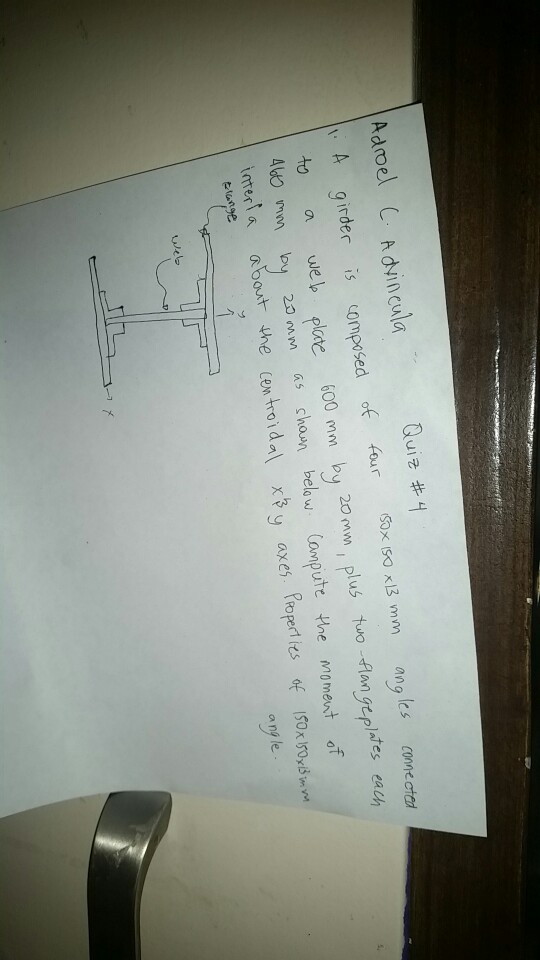 Adroel C. Advincula Quiz #4
1. A girder is composed of four 150x150x13 mm angles connected
to a web plate 600 mm by 20mm, plus two flangeplates each
460 mm by 20mm as shown below. Compute the moment of
interia about the centroidal x & y axes. Properties of 150x150x13mm
angle.
y
web
x